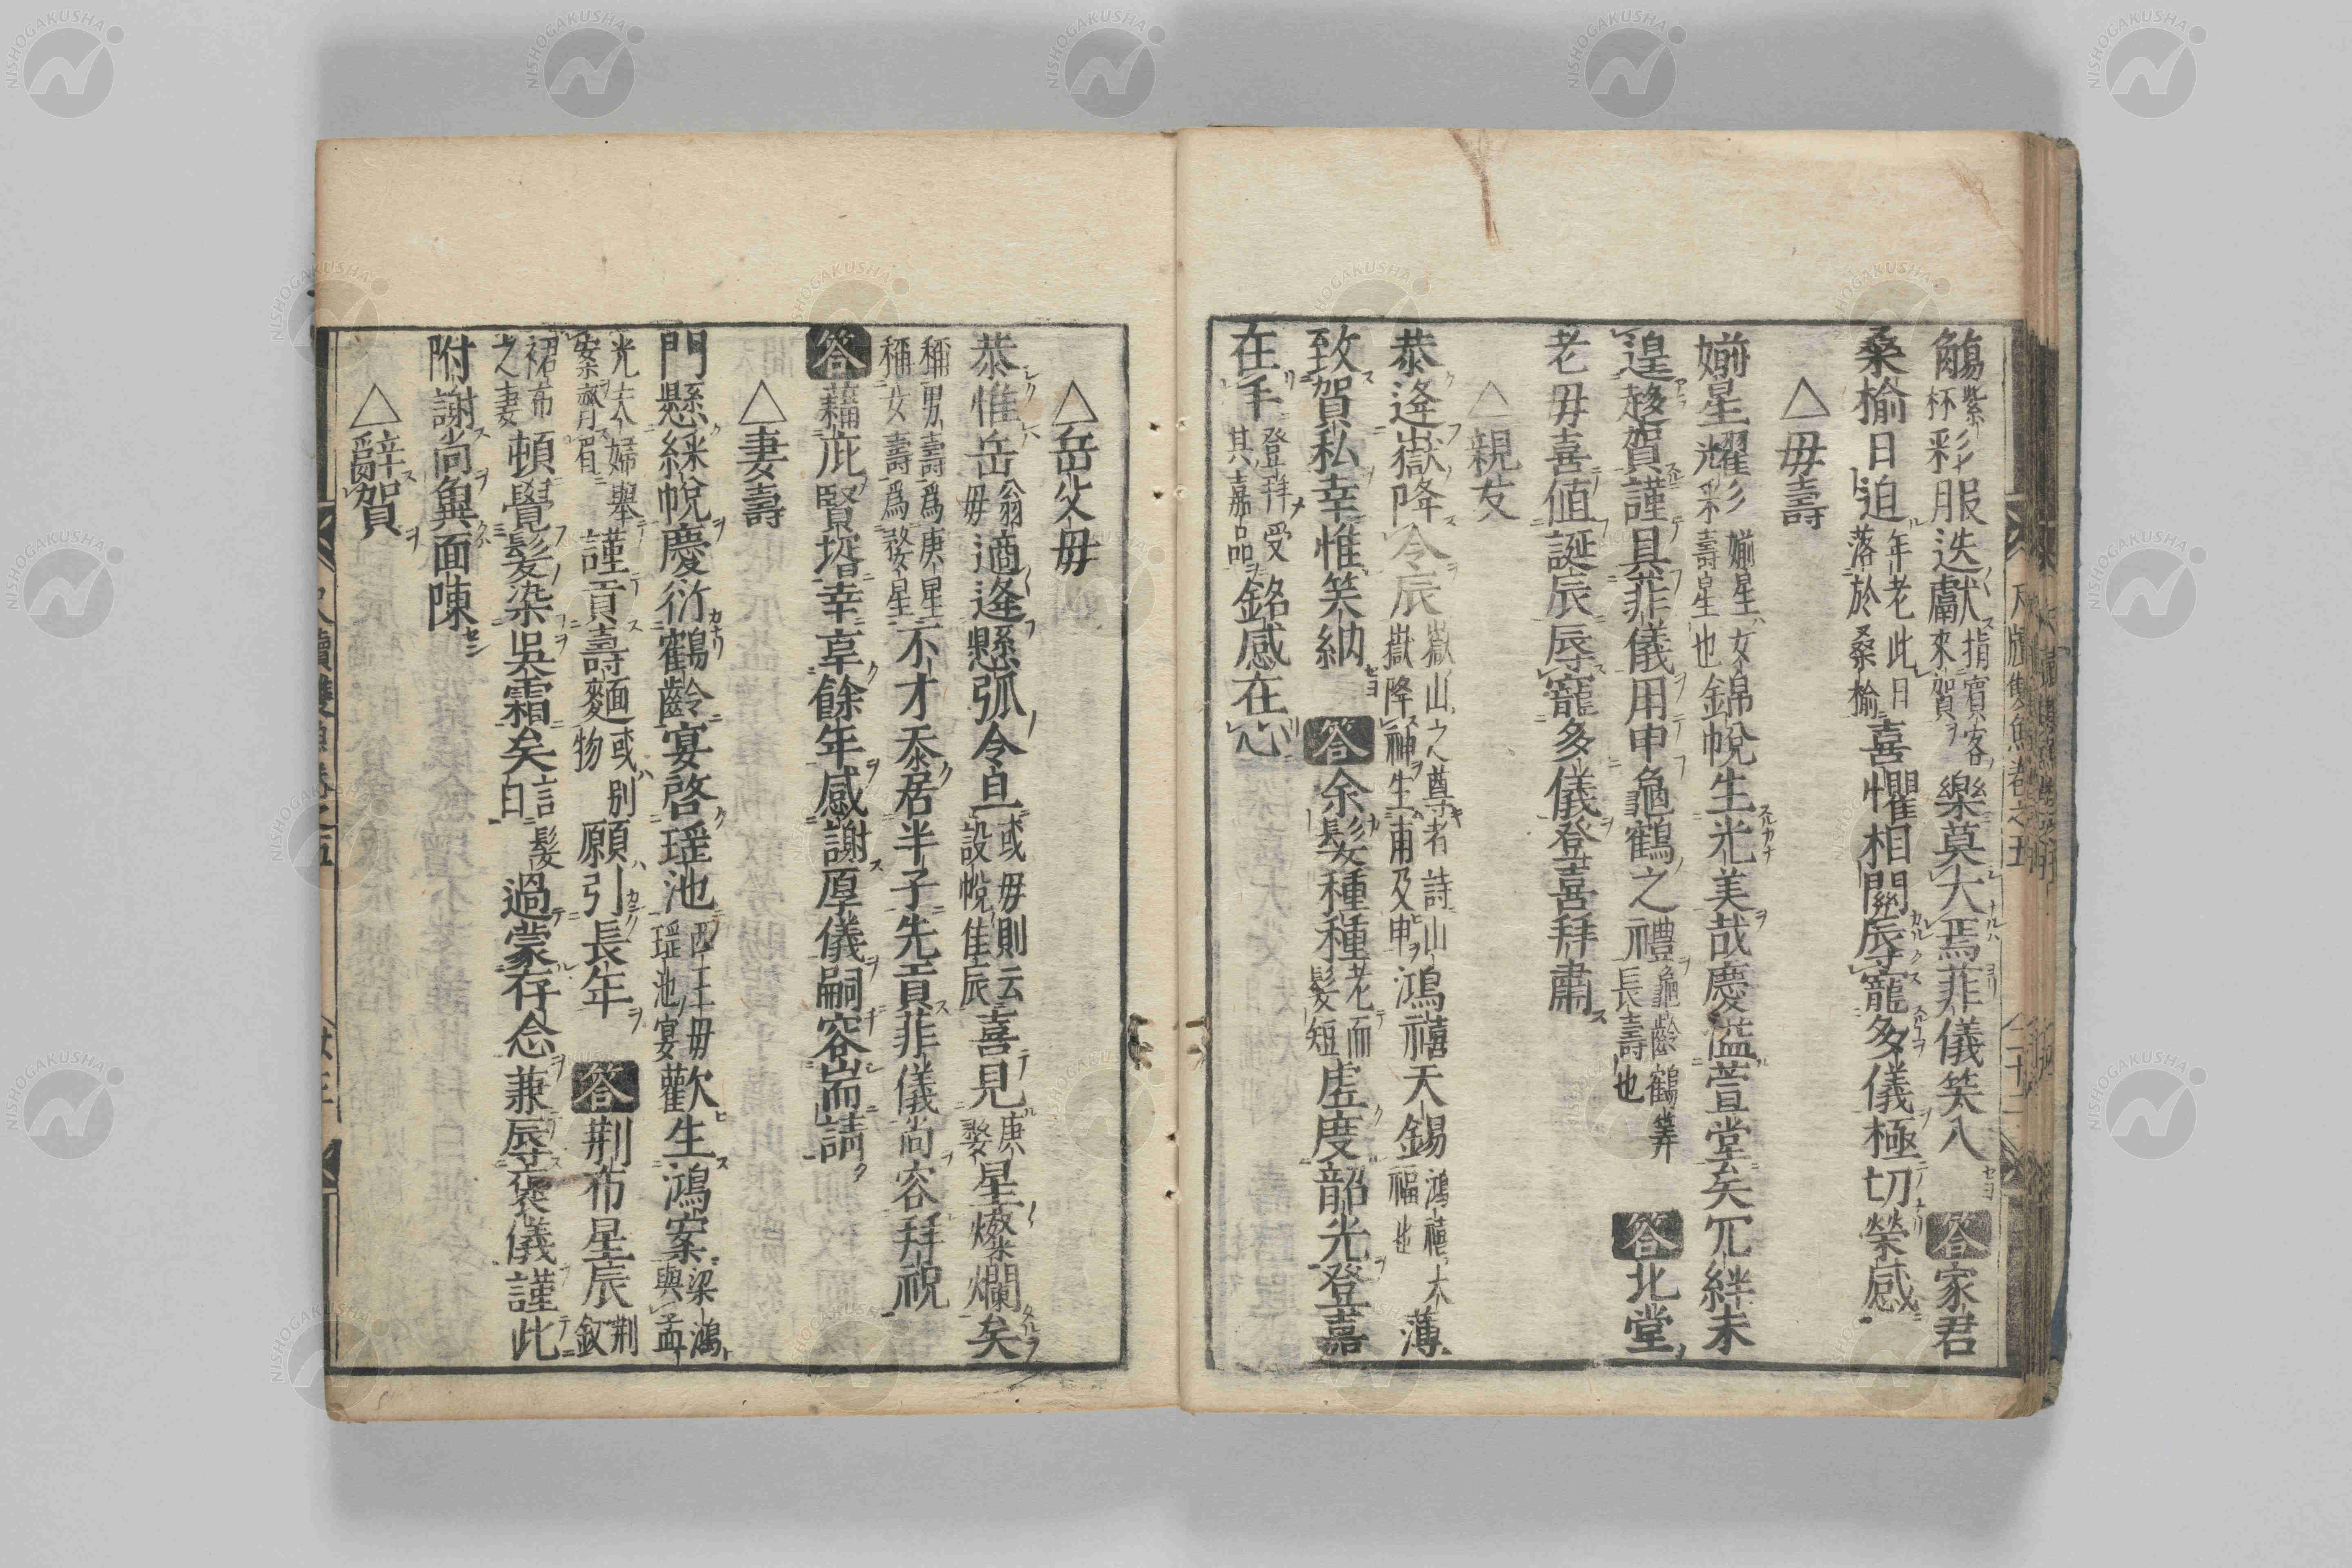 觴紫杯彩服迭獻指賓客來賀樂莫大焉菲儀笑入答家君
桑榆日迫年老此日落於桑榆喜懼相關辱寵多儀極切榮感
△母壽
婺星耀彩婺星女壽星也錦帨生光美哉慶溢萱堂矣冗絆未
遑趍賀謹具菲儀用申龜鶴之禮龜齡鶴筭長壽也答北堂
老母喜值誕辰辱寵多儀登喜拜肅
△親友
恭逢嶽降令辰嶽山之尊者詩山嶽降神生甫及申鴻禧天錫鴻禧大福也薄
致賀私幸惟笑納答余髮種種老而髮短虛度韶光登嘉
在手登拜受其嘉品銘感在心
△岳父母
恭惟岳翁母適逢懸弧令旦或母則云設帨佳辰喜見庚婺星燦爛矣
稱男壽爲庚星稱女壽爲婺星不才忝居半子先貢菲儀尚容拜祝
答藉庇賢壻幸享餘年感謝厚儀嗣容耑請
△妻壽
門懸綵帨慶衍鶴齡宴啓瑤池西王母瑤池宴歡生鴻案梁鴻與孟
光夫婦舉案齊眉謹貢壽麵或別物願引長年答荆布星辰荆釵
裙布之妻頓覺髮染吳霜矣言髮白過蒙存念兼辱褒儀謹此
附謝尚與面陳
△辭賀
尺牘雙魚卷之五
NISHOGAKUSHA